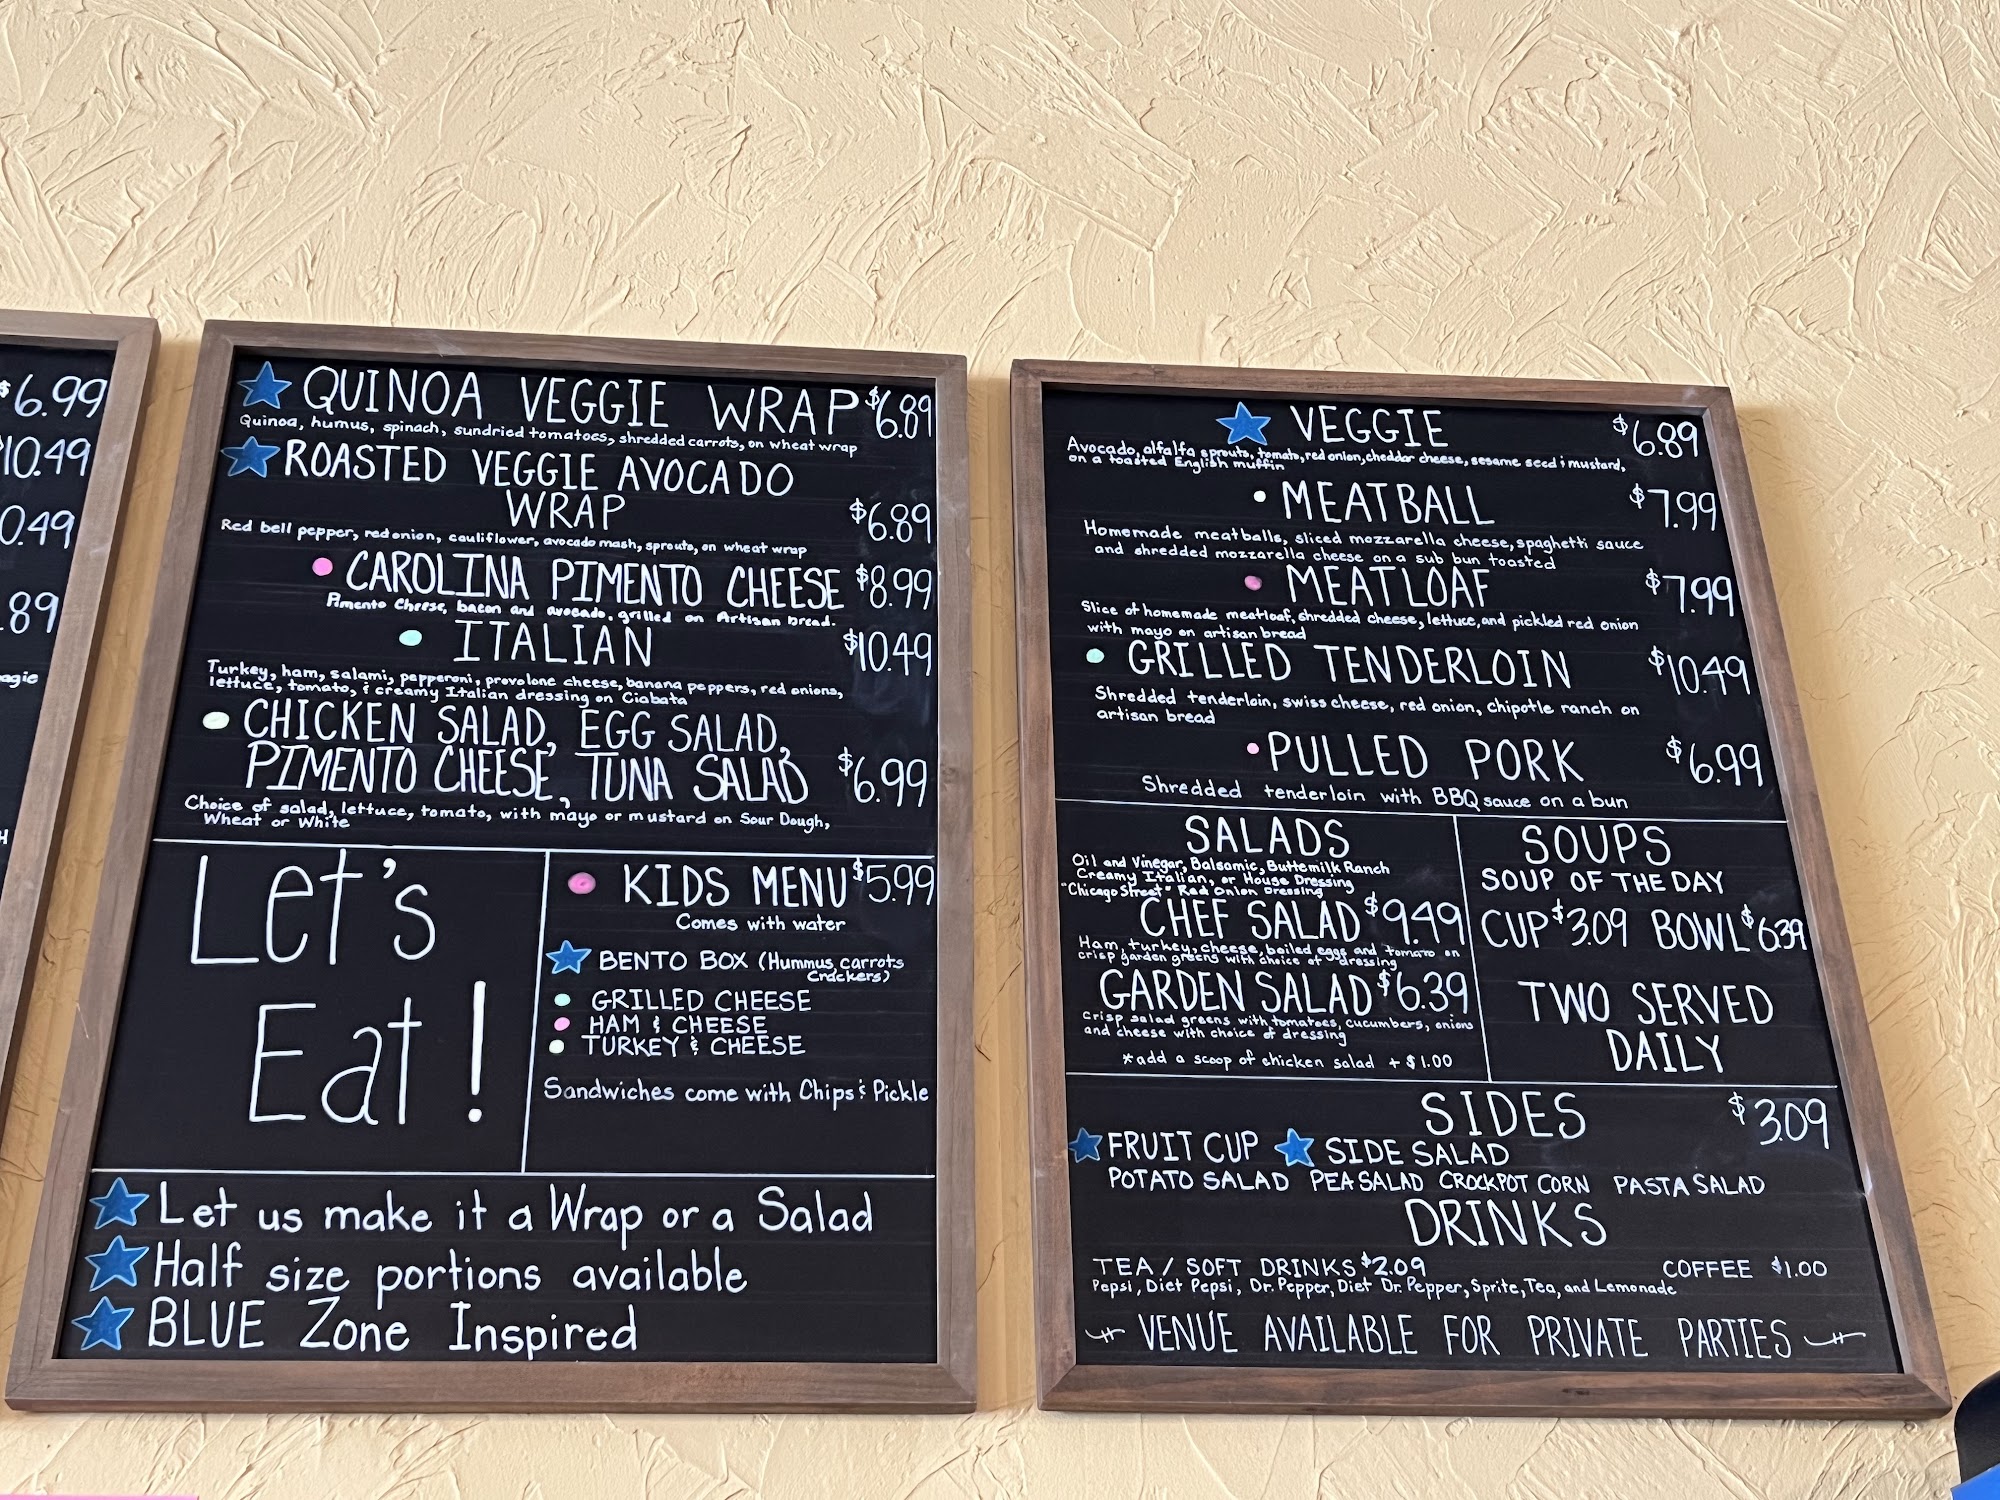 $6.99
10.49
0.49
.89
agie
H
QUINOA VEGGIE WRAP $6.89
Quinoa, humus, spinach, sundried tomatoes, shredded carrots, on wheat wrap
ROASTED VEGGIE AVOCADO
WRAP $6.89
Red bell pepper, red onion, cauliflower, avocado mash, sprouts, on wheat wrap
CAROLINA PIMENTO CHEESE $8.99
Pimento cheese, bacon and avocado, grilled on Artisan bread.
ITALIAN $10.49
Turkey, ham, salami, pepperoni, provolone cheese, banana peppers, red onions,
lettuce, tomato, & creamy Italian dressing on Ciabata
CHICKEN SALAD, EGG SALAD,
PIMENTO CHEESE, TUNA SALAD $6.99
Choice of salad, lettuce, tomato, with mayo or mustard on Sour Dough,
Wheat or White
Let's
Eat!
KIDS MENU $5.99
Comes with water
BENTO BOX (Hummus, carrots
Crackers)
GRILLED CHEESE
HAM & CHEESE
TURKEY & CHEESE
Sandwiches come with Chips & Pickle
Let us make it a Wrap or a Salad
Half size portions available
BLUE Zone Inspired
VEGGIE $6.89
Avocado, alfalfa sprouts, tomato, red onion, cheddar cheese, sesame seed & mustard,
on a toasted English muffin
MEATBALL $7.99
Homemade meatballs, sliced mozzarella cheese, spaghetti sauce
and shredded mozzarella cheese on a sub bun toasted
MEATLOAF $7.99
Slice of homemade meatloaf, shredded cheese, lettuce, and pickled red onion
with mayo on artisan bread
GRILLED TENDERLOIN $10.49
Shredded tenderloin, swiss cheese, red onion, chipotle ranch on
artisan bread
PULLED PORK $6.99
Shredded tenderloin with BBQ sauce on a bun
SALADS
Oil and Vinegar, Balsamic, Buttemilk Ranch
Creamy Italian, or House Dressing
"Chicago Street" Red Onion Dressing
CHEF SALAD $9.49
Ham, turkey, cheese, boiled eggs and tomato on
crisp garden greens with choice of dressing
GARDEN SALAD $6.39
Crisp salad greens with tomatoes, cucumbers, onions
and cheese with choice of dressing
*add a scoop of chicken salad + $1.00
SOUPS
SOUP OF THE DAY
CUP $3.09 BOWL $6.39
TWO SERVED
DAILY
SIDES $3.09
FRUIT CUP SIDE SALAD
POTATO SALAD PEA SALAD CROCKPOT CORN PASTA SALAD
DRINKS
TEA / SOFT DRINKS $2.09 COFFEE $1.00
Pepsi, Diet Pepsi, Dr. Pepper, Diet Dr. Pepper, Sprite, Tea, and Lemonade
VENUE AVAILABLE FOR PRIVATE PARTIES